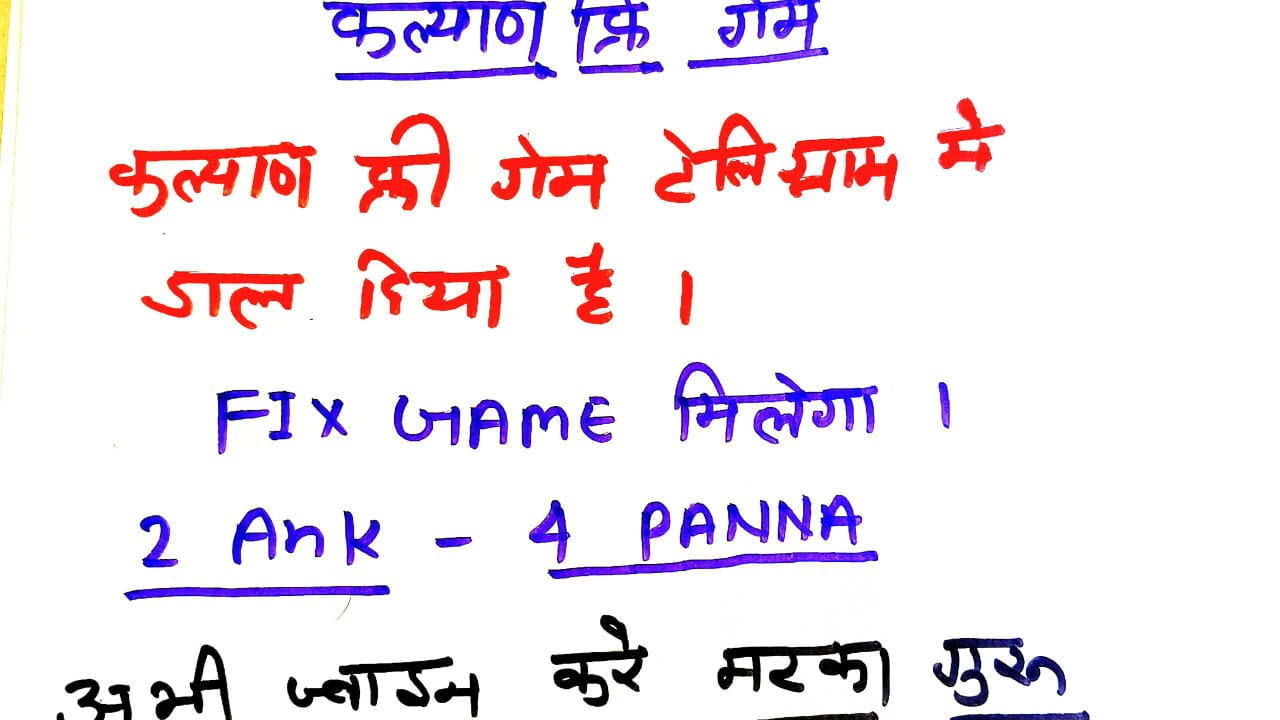 कल्याण फ्रि गेम
कल्याण फ्री गेम टेलिग्राम मे
डाल दिया है ।
FIX GAME मिलेगा ।
2 Ank - 4 PANNA
अभी ज्वाइन करे मटका गुरू